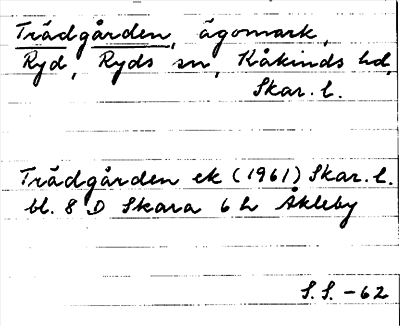 Trädgården, ägomark,
Ryd, Ryds sn, Kåkinds hd,
Skar. l.
Trädgården ek (1961) Skar. l.
bl. 8 D Skara 6 h Åkleby
S.S. -62